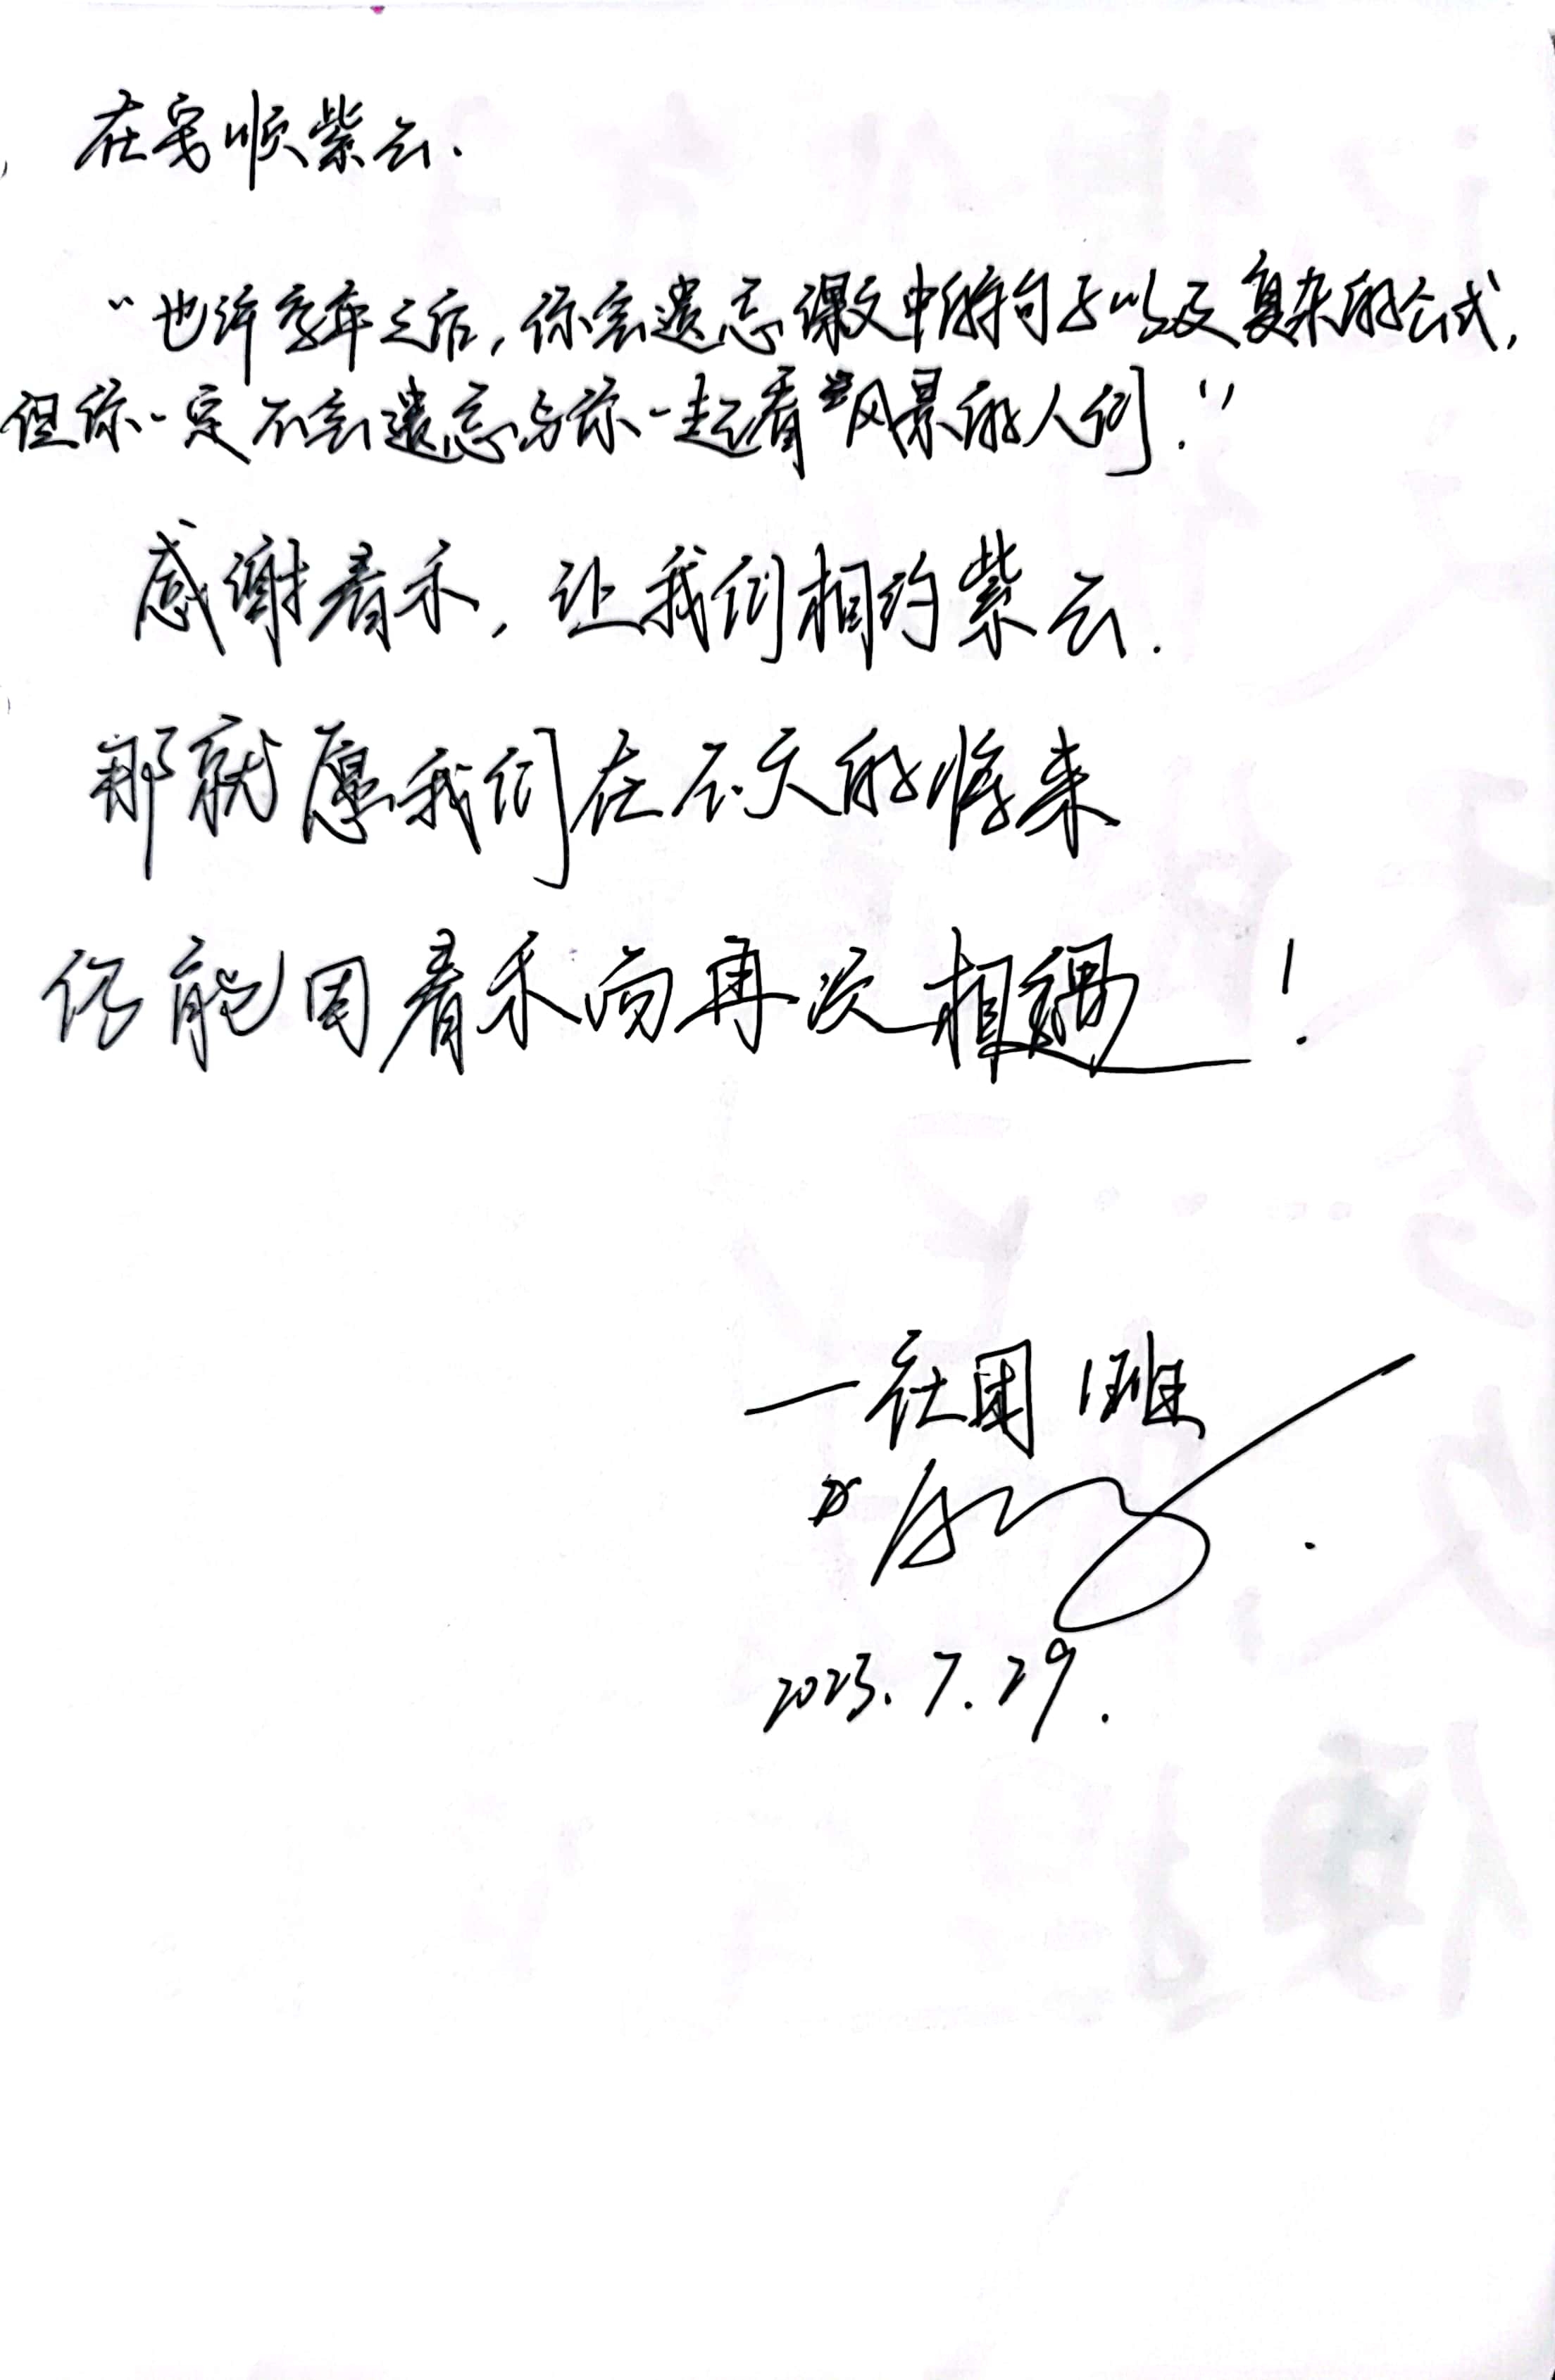 在安顺紫云.
“也许多年之后,你会遗忘课文中的句子以及复杂的公式,
但你一定不会遗忘与你一起看风景的人们.”
感谢春禾,让我们相约紫云.
那就愿我们在不久的将来
仍能因春禾而再次相遇!
—社团1班
2023.7.29.